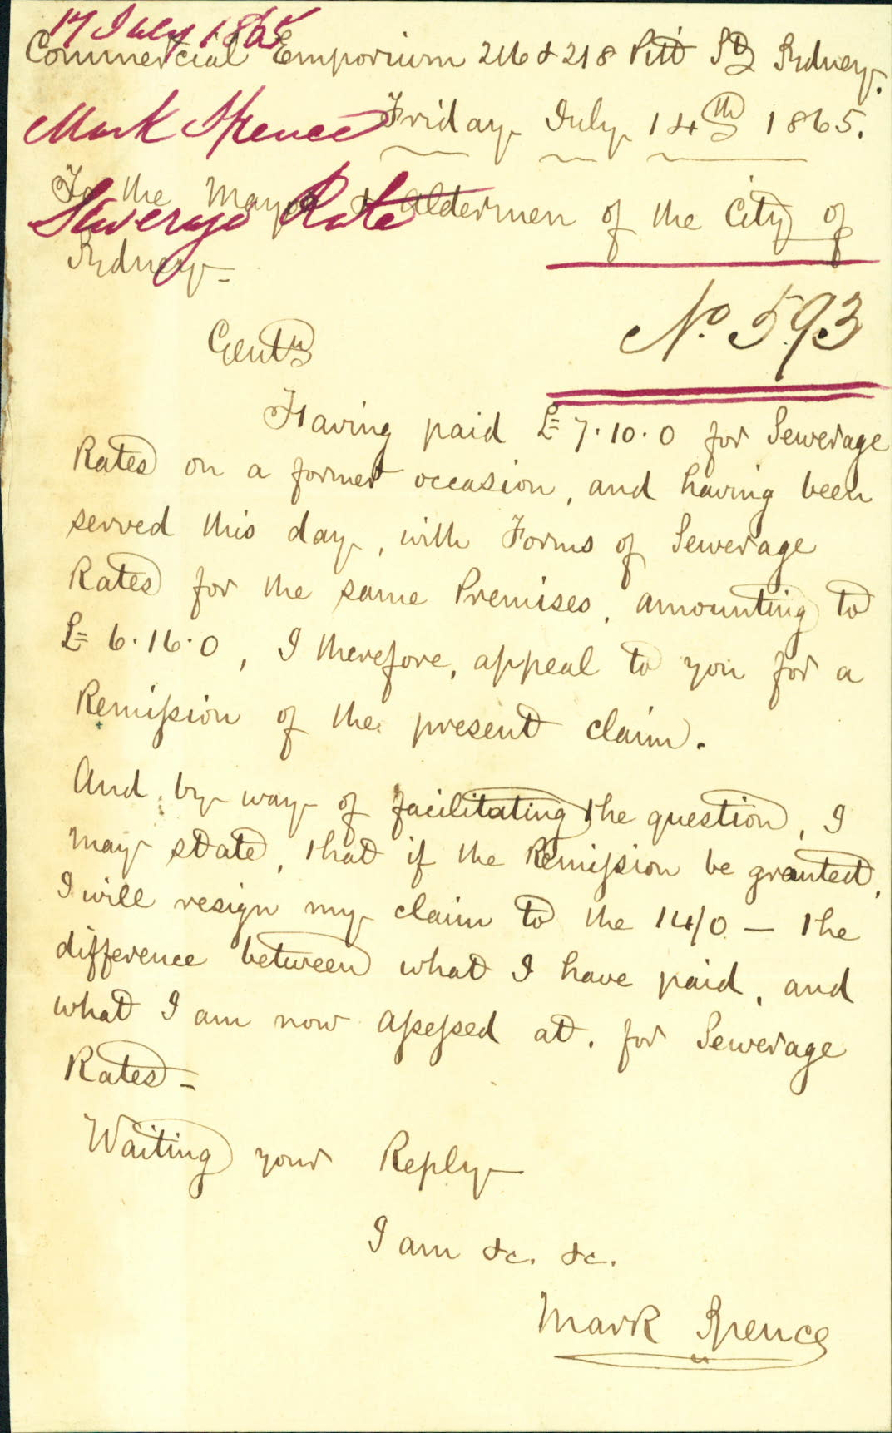 17 July 1865
Commercial Emporium 216 & 218 Pitt St Sydney.
Mark Spence
Friday July 14th 1865.
To the Mayor & Aldermen of the City of
Sewerage Rate
Sydney-
No. 593
Gents
Having paid £ 7.10.0 for Sewerage
Rates on a former occasion, and having been
served this day, with Forms of Sewerage
Rates for the same Premises, amounting to
£ 6.16.0, I therefore, appeal to you for a
Remission of the present claim.
And, by way of facilitating the question, I
may state, that if the Remission be granted,
I will resign my claim to the 14/0 — the
difference between what I have paid, and
what I am now assessed at, for Sewerage
Rates-
Waiting your Reply
I am &c. &c.
Mark Spence